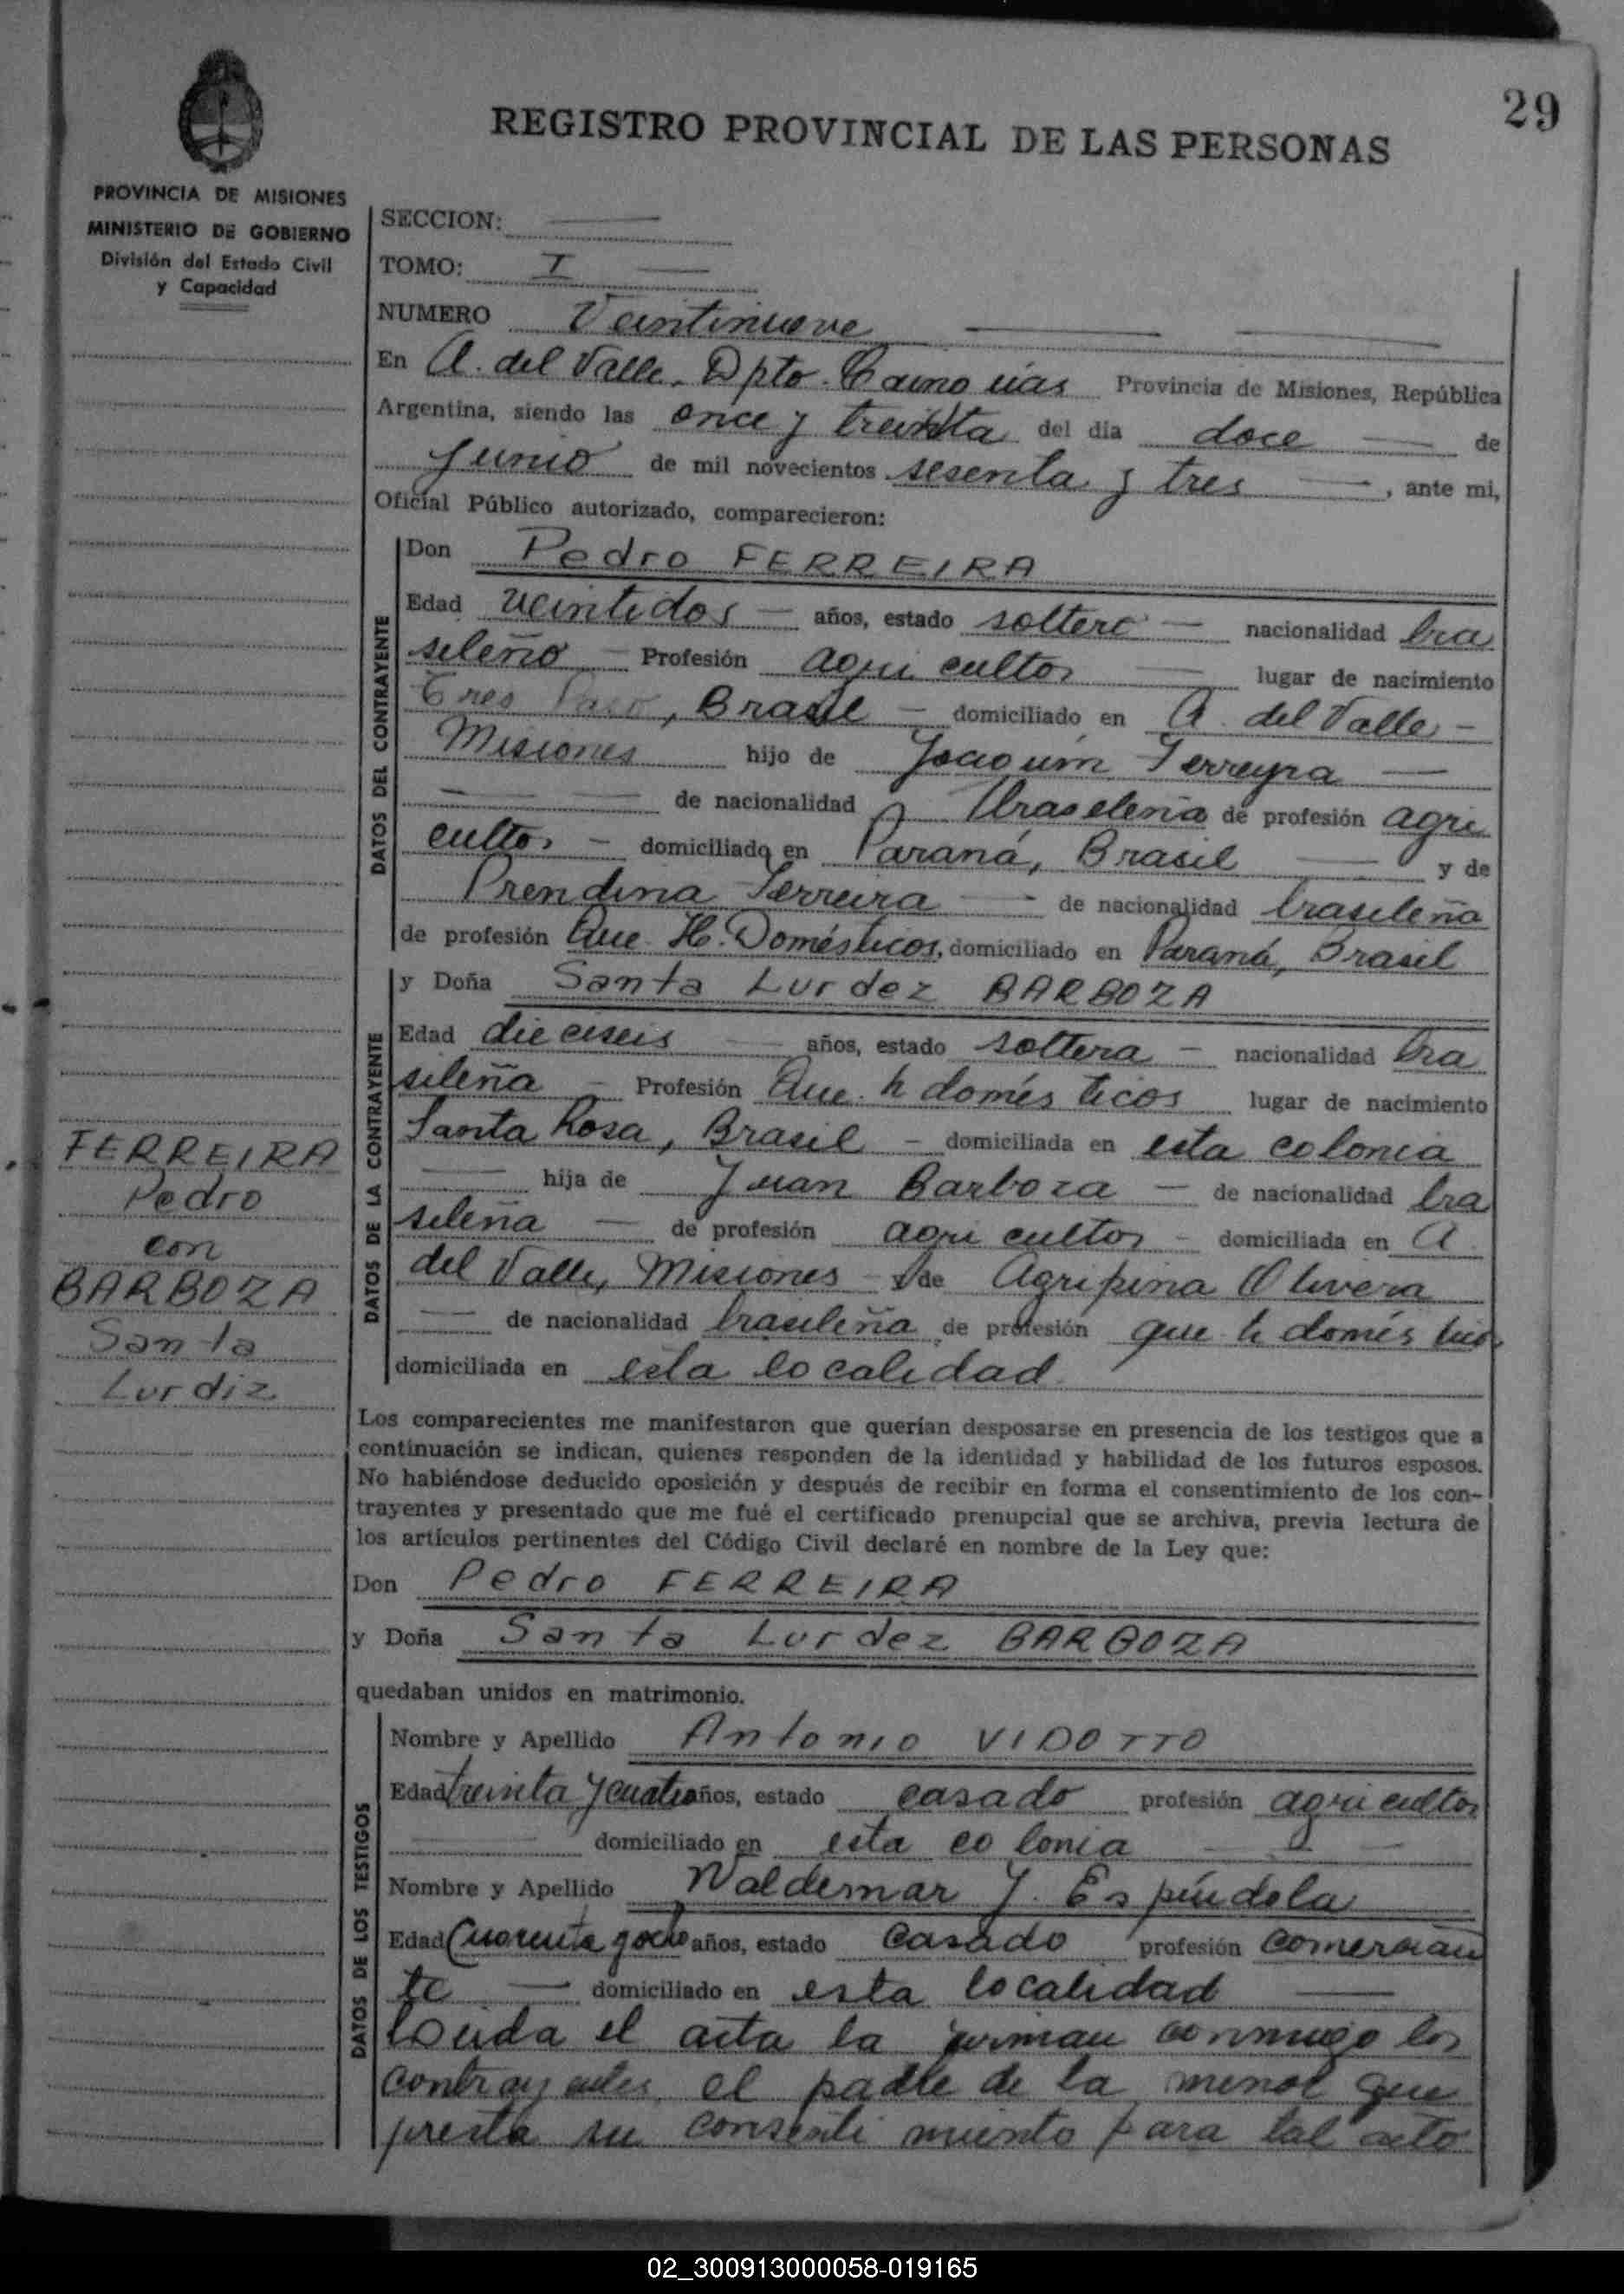 29
REGISTRO PROVINCIAL DE LAS PERSONAS
PROVINCIA DE MISIONES
MINISTERIO DE GOBIERNO
División del Estado Civil
y Capacidad
SECCION:
TOMO: I
NUMERO Veintinueve
En A. del Valle, Dpto. Cainguás Provincia de Misiones, República
Argentina, siendo las once y treinta del día doce de
Junio de mil novecientos sesenta y tres, ante mi,
Oficial Público autorizado, comparecieron:
DATOS DEL CONTRAYENTE
Don Pedro FERREIRA
Edad veintidos años, estado soltero nacionalidad bra
sileño Profesión agricultor lugar de nacimiento
Tres Paso, Brasil domiciliado en A. del Valle
Misiones hijo de Joaquim Ferreyra
de nacionalidad brasileña de profesión agri
cultor domiciliado en Paraná, Brasil y de
Prendina Ferreira de nacionalidad brasileña
de profesión Que. H. Domésticos, domiciliado en Paraná, Brasil
DATOS DE LA CONTRAYENTE
y Doña Santa Lurdez BARBOZA
Edad dieciseis años, estado soltera nacionalidad bra
sileña Profesión Que. h domésticos lugar de nacimiento
Santa Rosa, Brasil domiciliada en esta colonia
hija de Juan Barboza de nacionalidad bra
sileña de profesión agricultor domiciliada en A.
del Valle, Misiones y de Agripina Olivera
de nacionalidad brasileña de profesión que h domésticos
domiciliada en esta localidad
FERREIRA
Pedro
con
BARBOZA
Santa
Lurdiz
Los comparecientes me manifestaron que querían desposarse en presencia de los testigos que a
continuación se indican, quienes responden de la identidad y habilidad de los futuros esposos.
No habiéndose deducido oposición y después de recibir en forma el consentimiento de los con-
trayentes y presentado que me fué el certificado prenupcial que se archiva, previa lectura de
los artículos pertinentes del Código Civil declaré en nombre de la Ley que:
Don Pedro FERREIRA
y Doña Santa Lurdez BARBOZA
quedaban unidos en matrimonio.
DATOS DE LOS TESTIGOS
Nombre y Apellido Antonio VIDOTTO
Edad treinta y cuatro años, estado casado profesión agricultor
domiciliado en esta colonia
Nombre y Apellido Waldemar J. Espíndola
Edad Cuarenta y ocho años, estado casado profesión comercian
te domiciliado en esta localidad
Leida el acta la firman conmigo los
contrayentes, el padre de la menor que
presta su consentimiento para tal acto
02_300913000058-019165